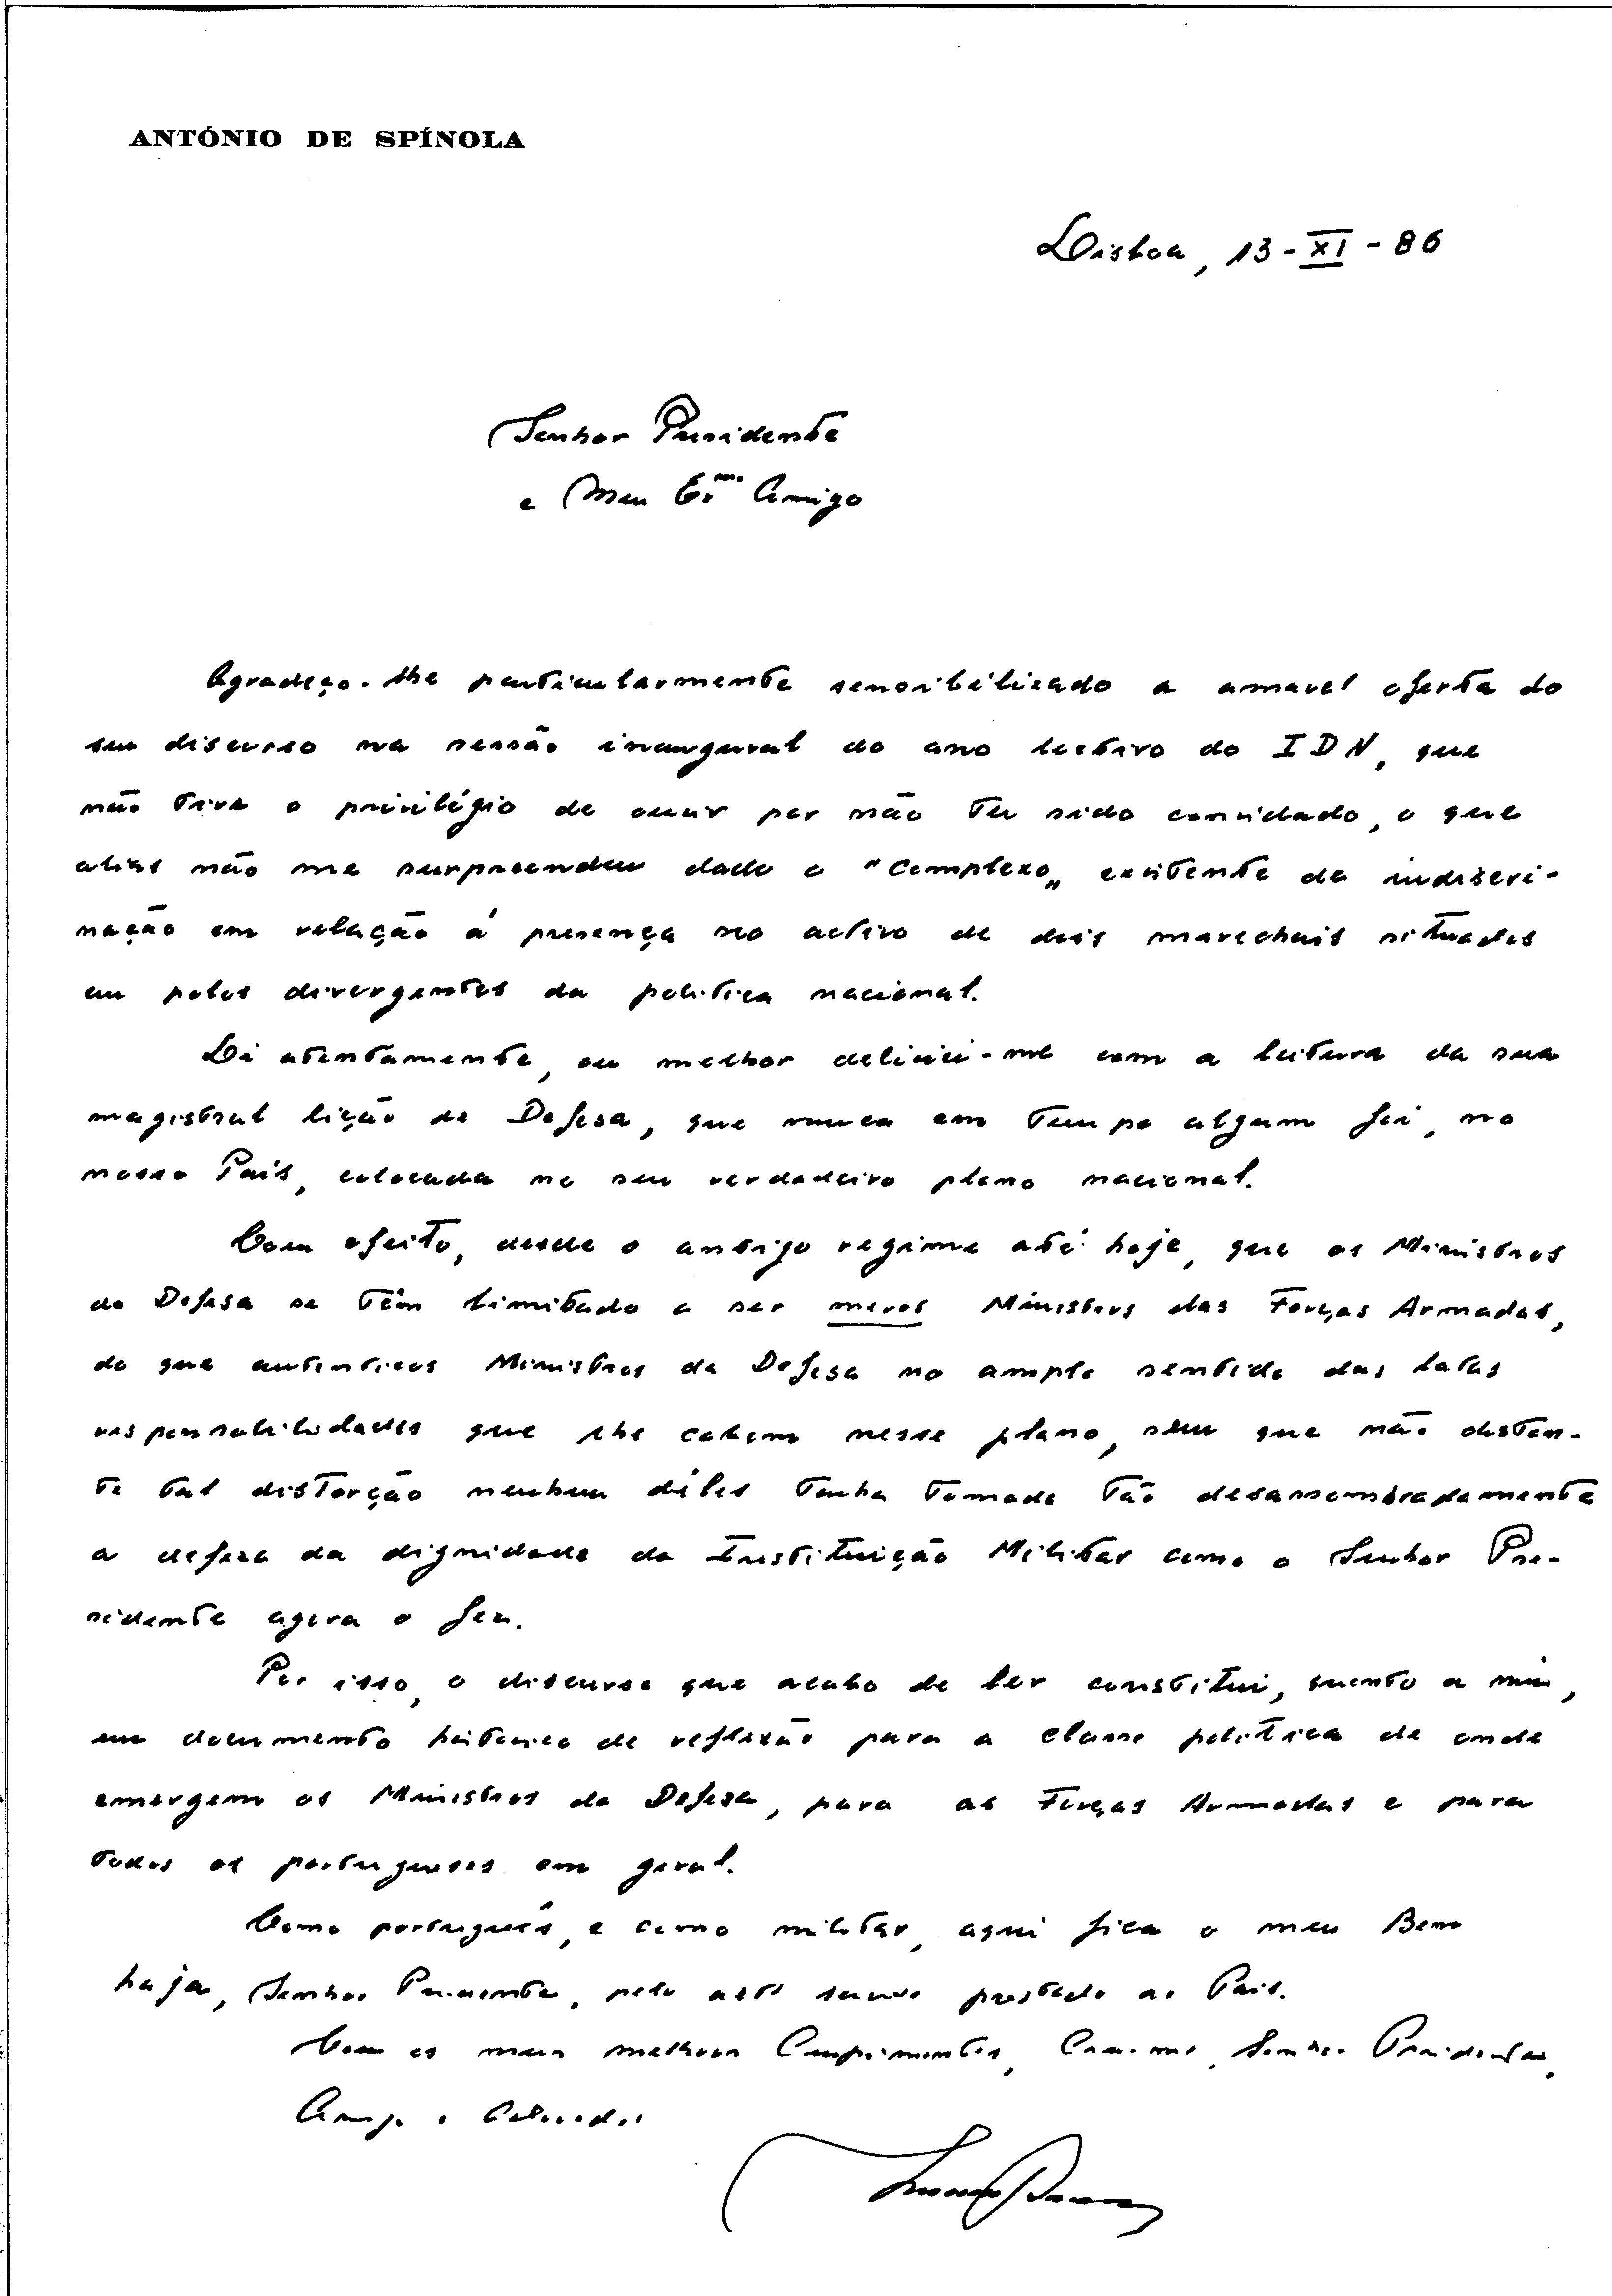 ANTÓNIO DE SPÍNOLA
Lisboa, 13-XI-86
Senhor Presidente
e Meu Ex.mo Amigo
Agradeço-lhe particularmente sensibilizado a amavel oferta do
seu discurso na sessão inaugural do ano lectivo do IDN, que
não tive o privilégio de ouvir por não ter sido convidado, o que
aliás não me surpreendeu dado o "Complexo" existente de
nação em relação á presença no activo de dois marechais situados
em polos divergentes da politica nacional.
Li atentamente, ou melhor deliciei-me com a leitura da sua
magistral lição de Defesa, que nunca em tempo algum foi, no
nosso País, colocada no seu verdadeiro plano nacional.
Com efeito, desde o antigo regime até hoje, que os Ministros
da Defesa se têm limitado a ser meros Ministros das Forças Armadas,
do que autenticos Ministros da Defesa no amplo sentido das latas
responsabilidades que lhe cabem nesse plano, sem que não obstan-
te tal distorção nenhum dêles tenha tomado tão desassombradamente
a defesa da dignidade da Instituição Militar como o Senhor Pre-
sidente agora o fez.
Por isso, o discurso que acabo de ler constitui, quanto a mim,
um documento historico de reflexão para a classe politica de onde
emergem os Ministros da Defesa, para as Forças Armadas e para
todos os portugueses em geral.
Como português, e como militar, aqui fica o meu Bem
haja, Senhor Presidente, pelo alto serviço prestado ao País.
Com os meus melhores Cumprimentos, Senhor Presidente,
Amigo e